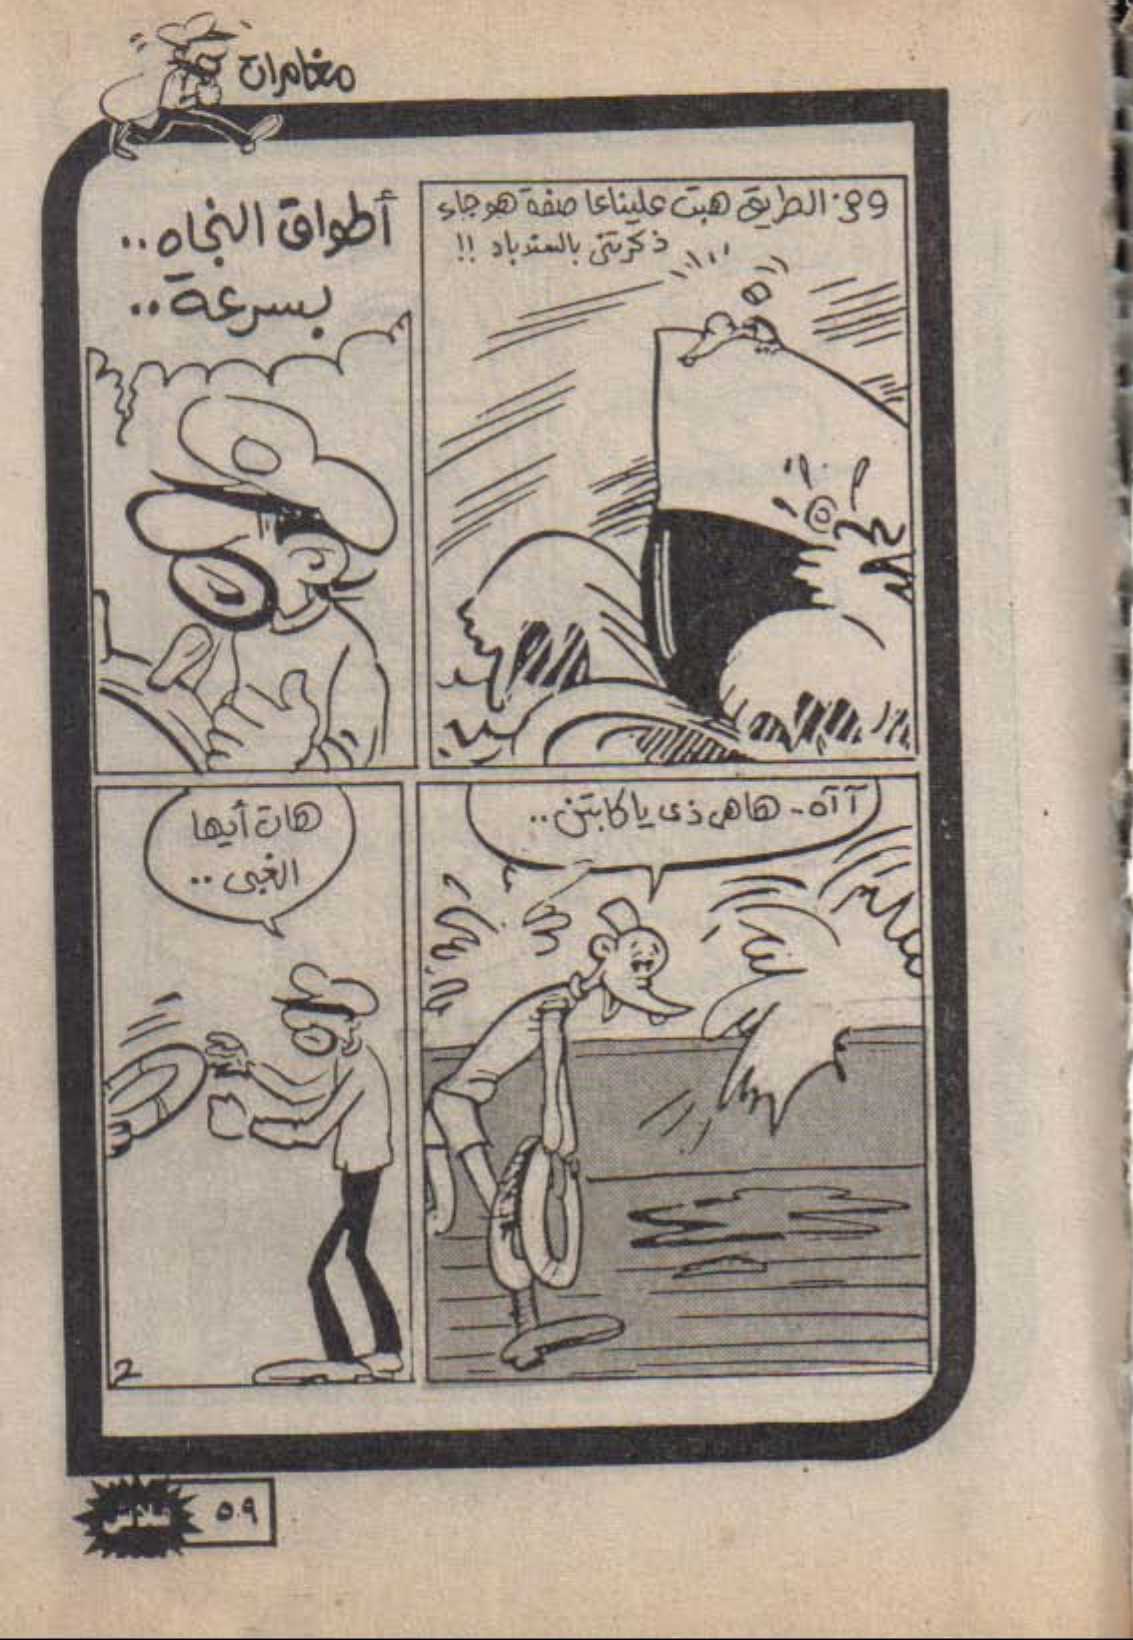 مغامرات
وفى الطريق هبت علينا عاصفة هوجاء
ذكرتنى بالسندباد !!
أطواق النجاه..
بسرعة..
آآه - هاهى ذى يا كابتن..
هات أيها
الغبى..
2
فلاش
٥٠٩